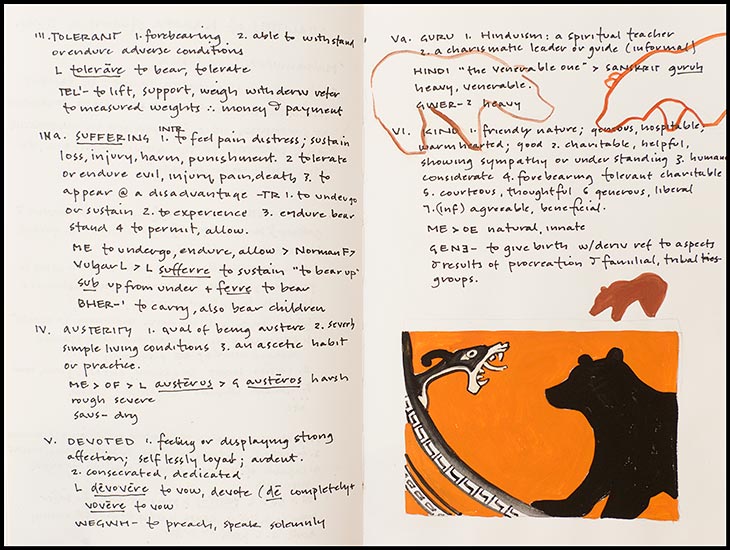 III. TOLERANT 1. forebearing 2. able to withstand
or endure adverse conditions
L tolerāre to bear, tolerate
TEL¹- to lift, support, weigh with deriv refer
to measured weights ∴ money & payment
IIIa. SUFFERING INTR. 1. to feel pain distress; sustain
loss, injury, harm, punishment. 2 tolerate
or endure evil, injury, pain, death, 3. to
appear @ a disadvantage -TR 1. to undergo
or sustain 2. to experience 3. endure bear
stand 4 to permit, allow.
ME to undergo, endure, allow > Norman F >
Vulgar L > L sufferre to sustain "to bear up"
sub up from under + ferre to bear
BHER-¹ to carry, also bear children
IV. AUSTERITY 1. qual of being austere 2. severly
simple living conditions 3. an ascetic habit
or practice.
ME > OF > L austērus > G austēros harsh
rough severe
saus- dry
V. DEVOTED 1. feeling or displaying strong
affection; selflessly loyal; ardent.
2. consecrated, dedicated
L dēvovēre to vow, devote (dē completely +
vovēre to vow
WEGWH- to preach, speak solemnly
Va. GURU 1. Hinduism: a spiritual teacher
2. a charismatic leader or guide (informal)
HINDI "the venerable one" > SANSKRIT guruh
heavy, venerable.
GWER-² heavy
VI. KIND 1. friendly nature; generous, hospitable,
warmhearted; good 2. charitable, helpful,
showing sympathy or understanding 3. humane
considerate 4. forebearing tolerant charitable
5. courteous, thoughtful 6 generous, liberal
7. (inf) agreeable, beneficial.
ME > OE natural, innate
GENƏ- to give birth w/deriv ref to aspects
& results of procreation & familial, tribal ties
groups.